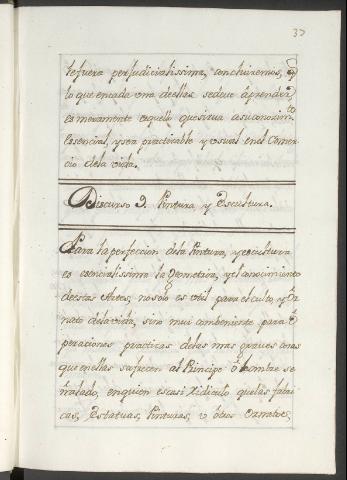 37
le fuera perjudicialissima, concluiremos, q̃
lo que en cada una de ellas se deve aprender,
es meramente aquello que sirva a su conocim.to
Essencial, y sea practicable y usual en el Comer
cio de la vida.
Discurso 9. Pintura, y Escultura.
Para la perfeccion de la Pintura, y escultura
es esencialissima la Geometria, y el conocimiento
de estas Artes, no solo es util para el culto, y Or
nato de la vida, sino mui combeniente para O
peraciones practicas de las mas graves cosas
que en ellas se ofrecen al Principe ò hombre se
ñalado, en quien es casi ridiculo que las fabri
cas, Estatuas, Pinturas, ù otros Ornatos,